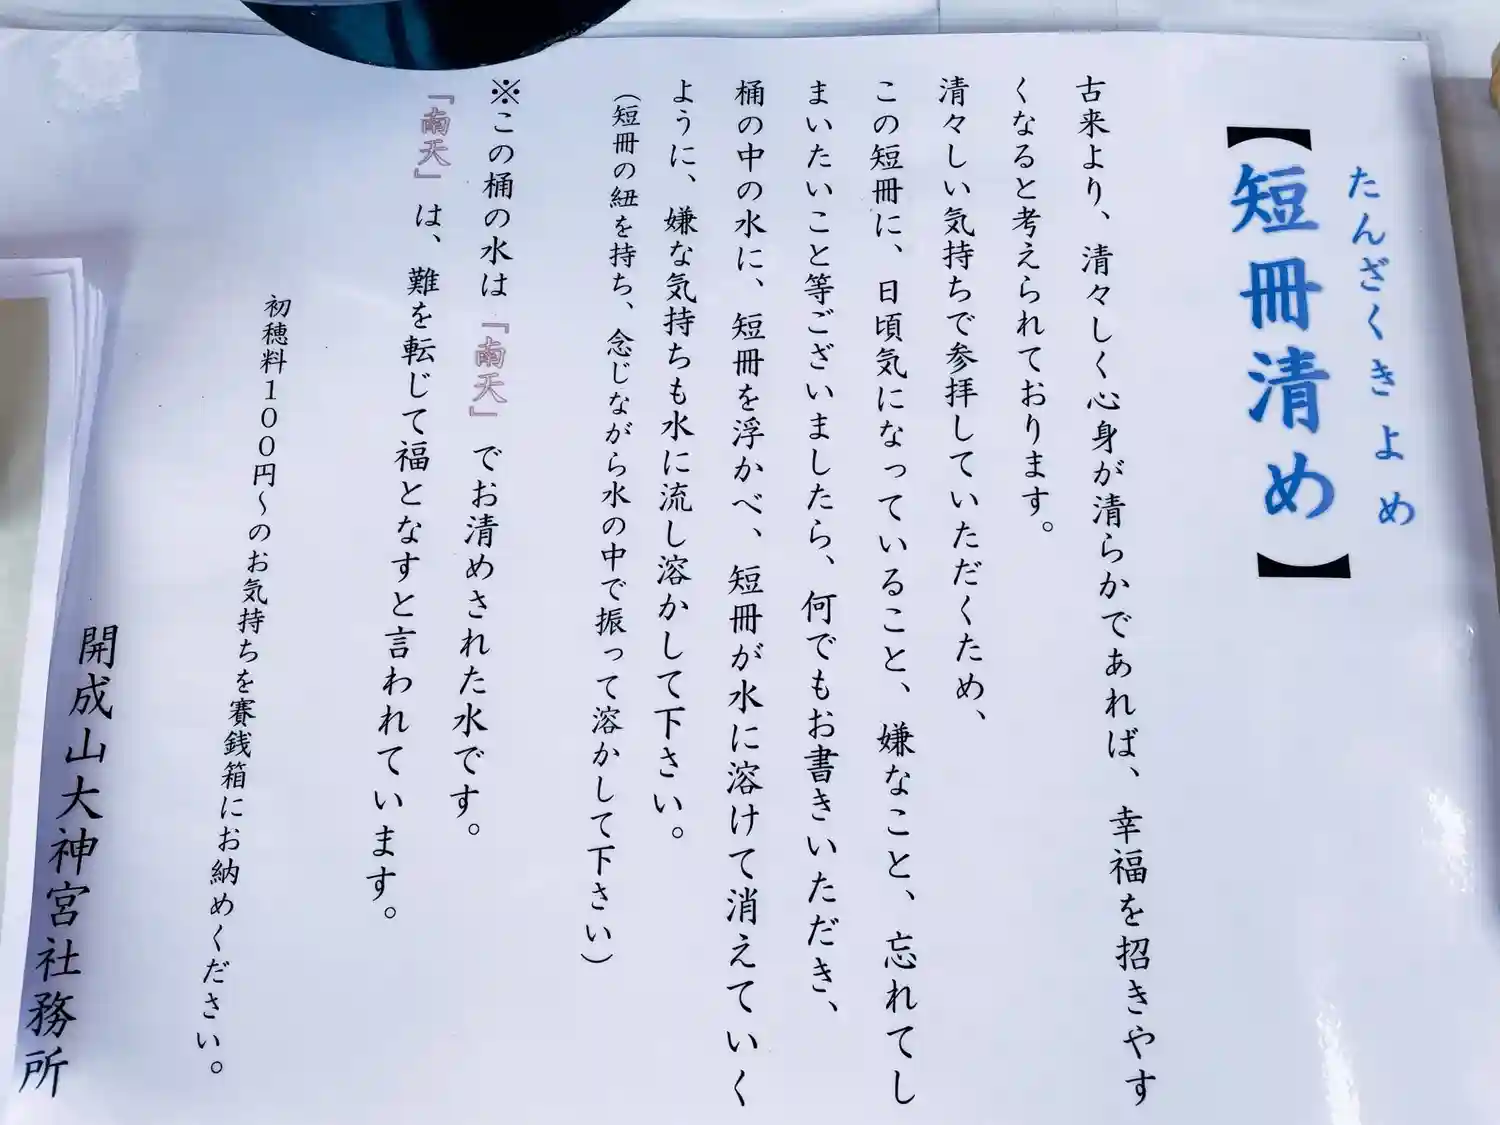 たんざくきよめ
【短冊清め】
古来より、清々しく心身が清らかであれば、幸福を招きやす
くなると考えられております。
清々しい気持ちで参拝していただくため、
この短冊に、日頃気になっていること、嫌なこと、忘れてし
まいたいこと等ございましたら、何でもお書きいただき、
桶の中の水に、短冊を浮かべ、短冊が水に溶けて消えていく
ように、嫌な気持ちも水に流し溶かして下さい。
（短冊の紐を持ち、念じながら水の中で振って溶かして下さい）
※この桶の水は『南天』でお清めされた水です。
『南天』は、難を転じて福となすと言われています。
初穂料１００円～のお気持ちを賽銭箱にお納めください。
開成山大神宮社務所